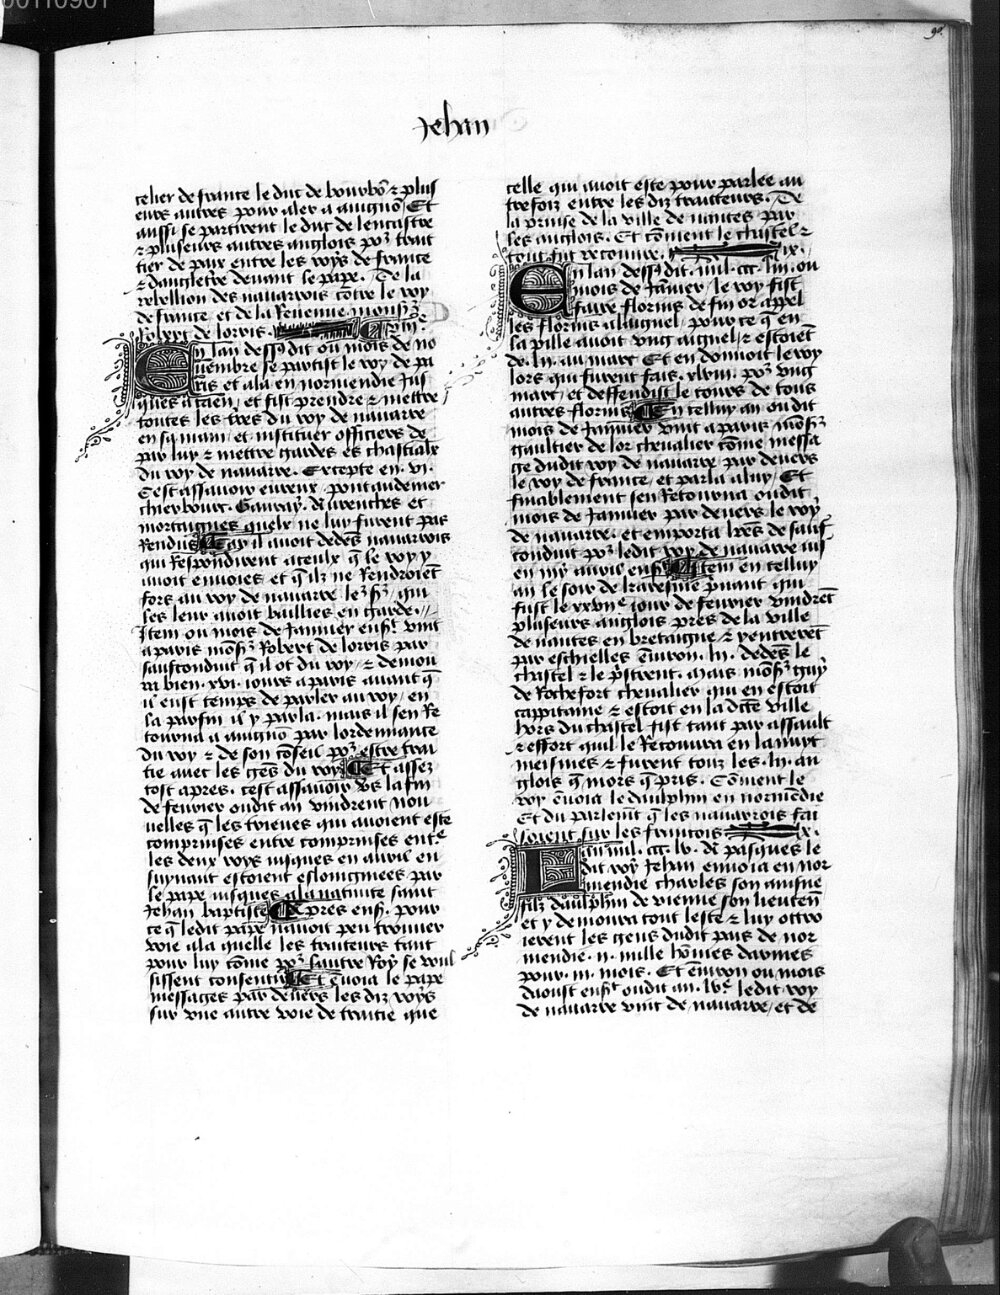 00110901
90.
Jehan
celier de france le duc de bourbõ ⁊ plus
eurs autres pour aler a auignõ / Et
aussi se partirent le duc de lencastre
⁊ plusieurs autres anglois poꝫ trait
tier de paix entre les roys de france
⁊ dangletr̃e deuant le pape. De la
rebellion des nauarrois cõtre le roy
de france et de la Reuenue monsꝫ̃ de
Robert de lorris.
En lan dess9 dit ou mois de no
uembre se partist le roy de pa
ris et ala en normendie Jus
ques a caen / et fist prendre ⁊ mettre
toutes les tr̃es du roy de nauarre
en sa main / et instituer officiers de
par luy ⁊ mettre gardes es chastiaulx
du roy de nauarre. Excepte en .vi.
Cest assauoir eureux / pont audemer
chierbourc. Gauray. Auurenches et
mortaignes quelx ne luy furent pas
Rendus Cay il auoit dedẽs nauarrois
qui Respondirent a ceulx q̃ le roy y
auoit enuoies et q̃ ilz ne Rendroiẽt
fors au roy de nauarre le s̃ꝫ qui
les leur auoit baillies en garde.
Item ou mois de Januier ens9 vint
a paris mõsꝫ̃ Robert de lorris par
saufconduit q̃ il ot du roy / ⁊ demou
ra bien .xvi. iours a paris auant q̃
il eust temps de parler au roy / en
la parfin il y parla. mais il sen Re
tourna a auignõ par lordenance
du roy ⁊ de son cõseil poꝫ estre trai
tie auec les gẽs du roy Et assez
tost apres. cest assauoir vs̃ la fin
de feurier oudit an vindrent nou
uelles q̃ les trieues qui auoient este
comprinses entre comprinses entẽ
les deux roys iusques en auril en
suyuant estoient eslongniees par
le pape iusques a la natiuite saint
Jehan baptiste Apres ens9. pour
ce q̃ ledit pape nauoit peu trouuer
voie a la quelle les traiteurs tant
pour luy cõme poꝫ lautre Roy se voul
sissent consentir Et enuoia le pape
messages par deuers les diz roys
sur vne autre voie de traitie que
celle qui auoit este pour parlee au
trefoiz entre les diz traitteurs. De
la prinse de la ville de nantes par
les anglois. Et cõment le chastel ⁊
tout fut recouure. ix.
En lan dess9 dit .mil.ccc.liiii. ou
mois de Januier / le roy fist
faire florins de fin or appel
les florins a laignel / pour ce q̃ en
la pille auoit vng aignel / ⁊ estoiẽt
de .lii. au marc Et en donnoit le roy
lors qui furent fais. xlviii. poꝫ vng
marc / et deffendist le cours de tous
autres florins En celluy an oudit
mois de Januier vint a paris mõsꝫ̃
gaultier de lor cheualier cõme messa
ge dudit roy de nauarre par deuers
le roy de france / et parla a luy / Et
finablement sen Retourna oudit
mois de Januier par deuers le roy
de nauarre. et emporta lr̃es de sauf
conduit poꝫ ledit roy de nauarre iusq̃
en my auril ens9 Item en celluy
an le soir de karesme p̃nant qui
fust le xxvııe iour de feurier vindrẽt
plusieurs anglois pres de la ville
de nantes en bretaigne ⁊ y entrerẽt
par eschielles ẽuiron .lii. dedẽs le
chastel ⁊ le p̃strent. Mais mõsꝫ̃ guy
de Rochefort cheualier qui en estoit
cappitaine ⁊ estoit en la dicte ville
hors du chastel fist tant par assault
⁊ effort quil le Recouura en la nuyt
meismes ⁊ furent touz les .lii. an
glois q̃ mors q̃ pris. Cõment le
roy ẽuoia le daulphin en normẽdie
Et du parlemẽt q̃ les nauarrois fai
soient sur les francois x.
Lan mil.ccc.lv. Ap̃s pasques le
dit roy Jehan enuoia en nor
mendie charles son ainsne
filz daulphin de vienne son lieuten
et y demoura tout leste ⁊ luy ottro
ierent les gens dudit pais de nor
mendie .ii. mille hõmes darmes
pour .iii. mois. Et ẽuiron ou mois
daoust ens9 oudit an .lv. ledit roy
de nauarre vint de nauarre / et de